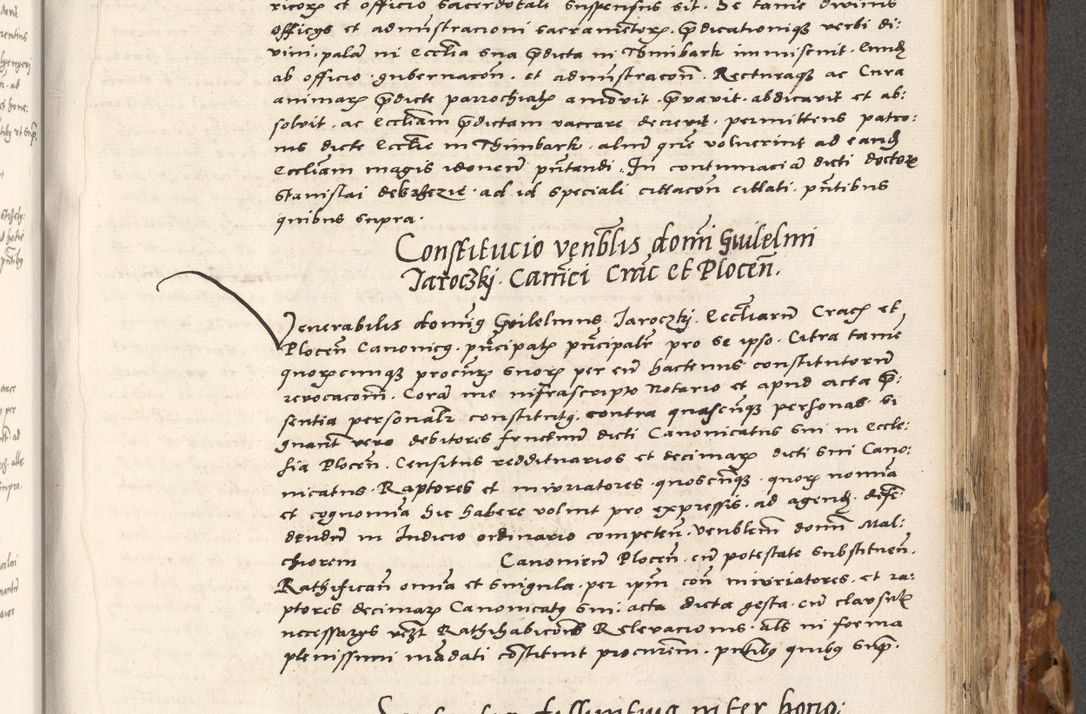 ricorum et officio sacerdotali suspensus sit. Se tamen divinis
officijs et administracioni sacramentorum, predicationique verbi di-
vini, palam in Ecclesia sua predicta in Thimbark immiscuit. Eundem
ab officio, gubernacion. et administracion. Rectureque ac Cura
animarum predicte parrochialis amovit, privavit, abdicavit et ab-
solvit, ac Ecclesiam predictam vaccare decrevit, permittens patro-
nis dicte Ecclesie in Thimbark, alium quem voluerint ad eandem
Ecclesiam magis idoneum presentandi. In contumaciam dicti doctoris
Stanislai ad id speciali cittacion cittati. presentibus
quibus supra.
Constitucio venerabilis domini Guilelmi
Jaroczki. Canonici Crac et Plocen.
Venerabilis dominus Guilelmus Jaroczki. Ecclesiarum Crac et
Plocen Canonicus. principalis principaliter pro se ipso. Citra tamen
quorumcunque procuratorum suorum per eum hactenus constitutorum
revocacionem. Coram me infrascripto Notario et apud acta pre-
sentia personaliter constitutus. contra quascunque personas. si
gnanter vero debitores fructuum dicti Canonicatus sui in Eccle-
sia Plocen. Censitus reddituarios et decimarum dicti sui Cano-
nicatus. Raptores et iniuriatores. quoscunque. quorum nomina
et cognomina hic habere voluit pro expressis. ad agendum. defen
dendum in Iudicio ordinario competen. Venerabilem dominum Mal-
chiorem Canonicum Plocen. cum potestate substituen.
Rathifican omnia et singula. per ipsum con iniuriatores. et ra-
ptores decimarum Canonicatus sui. acta dicta gesta. cum clausulis
necessarijs Rathihabicionis Relevacionis. alias in forma
plenissimi mandati constituit procuratorem. presentibus quibus supra.